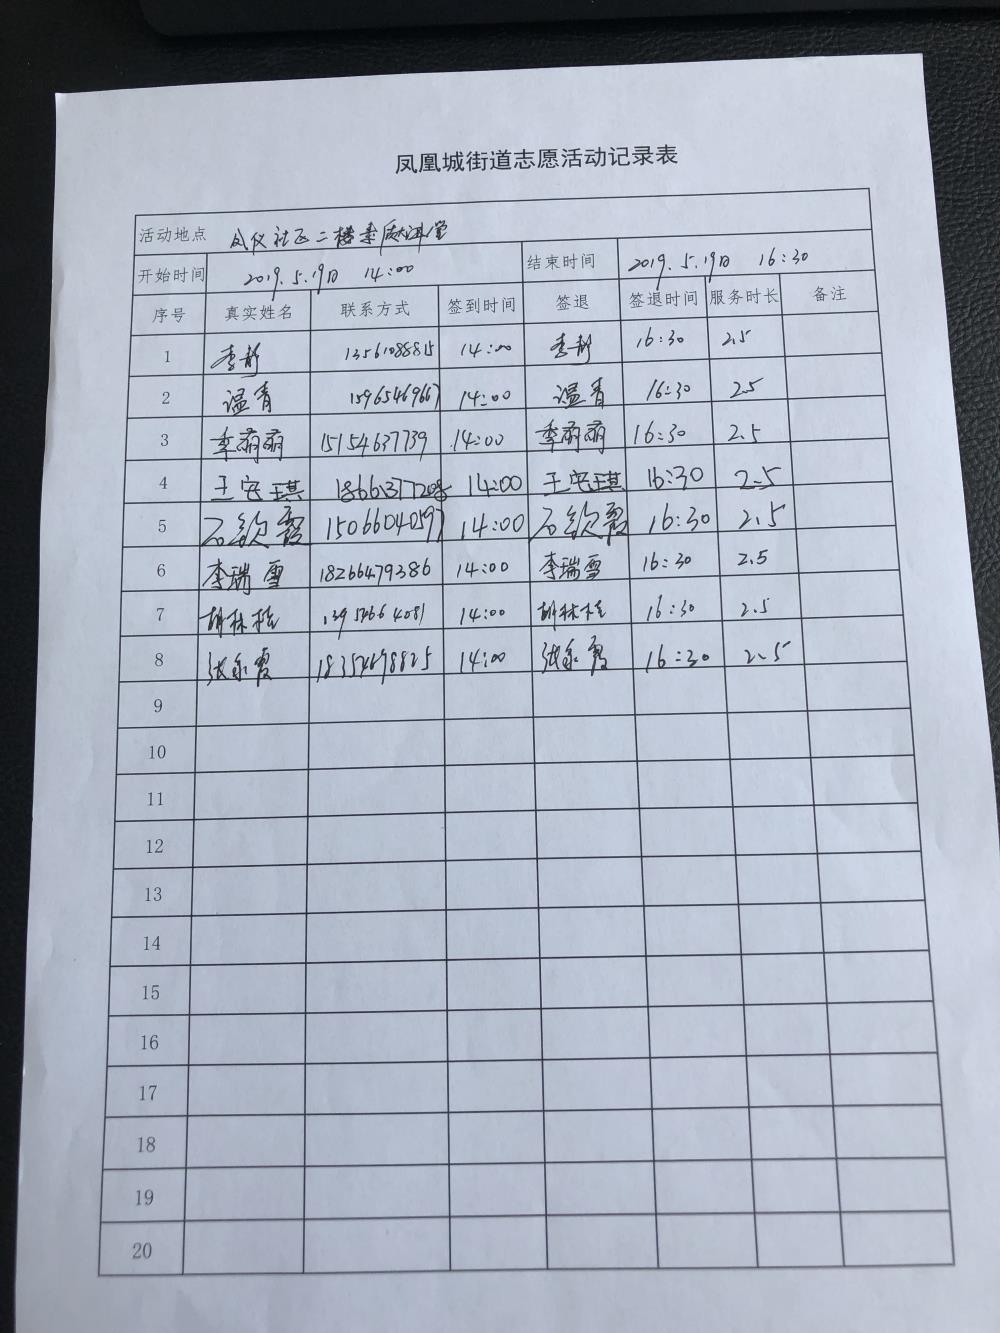 凤凰城街道志愿活动记录表
活动地点 凤仪社区二楼素质大讲堂
开始时间 2019.5.19日 14:00 结束时间 2019.5.19日 16:30
序号 真实姓名 联系方式 签到时间 签退 签退时间 服务时长 备注
1 李静 14:00 李静 16:30 2.5
2 温青 15965469667 14:00 温青 16:30 2.5
3 季萌萌 15154637739 14:00 季萌萌 16:30 2.5
4 王宝琪 14:00 王宝琪 16:30 2.5
5 石钦霞 15066040597 14:00 石钦霞 16:30 2.5
6 李瑞雪 18266479386 14:00 李瑞雪 16:30 2.5
7 胡林桂 14:00 胡林桂 16:30 2.5
8 张永霞 14:00 张永霞 16:30 2.5
9
10
11
12
13
14
15
16
17
18
19
20